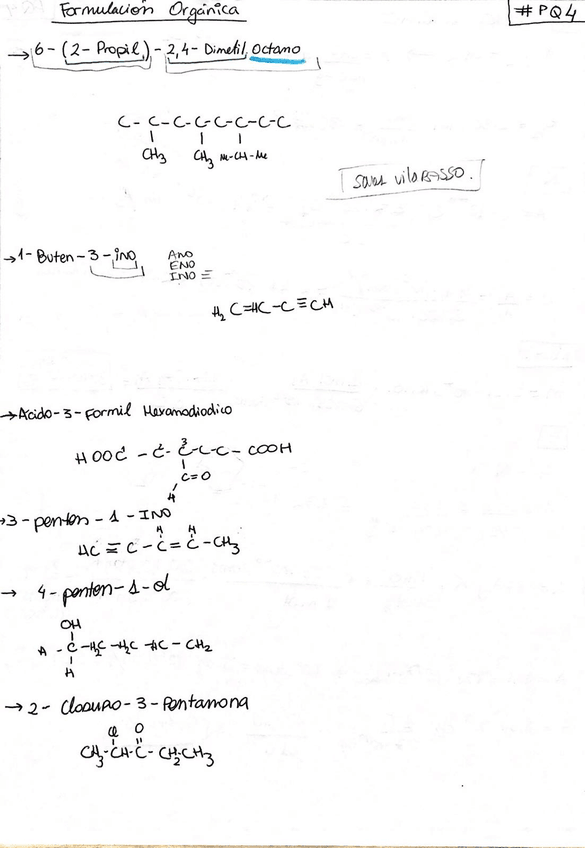 Formulación Orgánica
# PQ4
→ 6-(2-Propil)-2,4-Dimetil Octano
C-C-C-C-C-C-C-C
CH3 CH3 Me-CH-Me
→ 1-Buten-3-ino
ANO
ENO
INO ≡
H2C=HC-C≡CH
→ Acido-3-Formil Hexanodioico
3
HOOC-C-C-C-C-COOH
C=O
H
→ 3-penten-1-INO
H H
HC≡C-C=C-CH3
→ 4-penten-1-ol
OH
H-C-H2C-H2C-HC-CH2
H
→ 2-Clouro-3-Pentanona
Cl O
CH3-CH-C-CH2-CH3